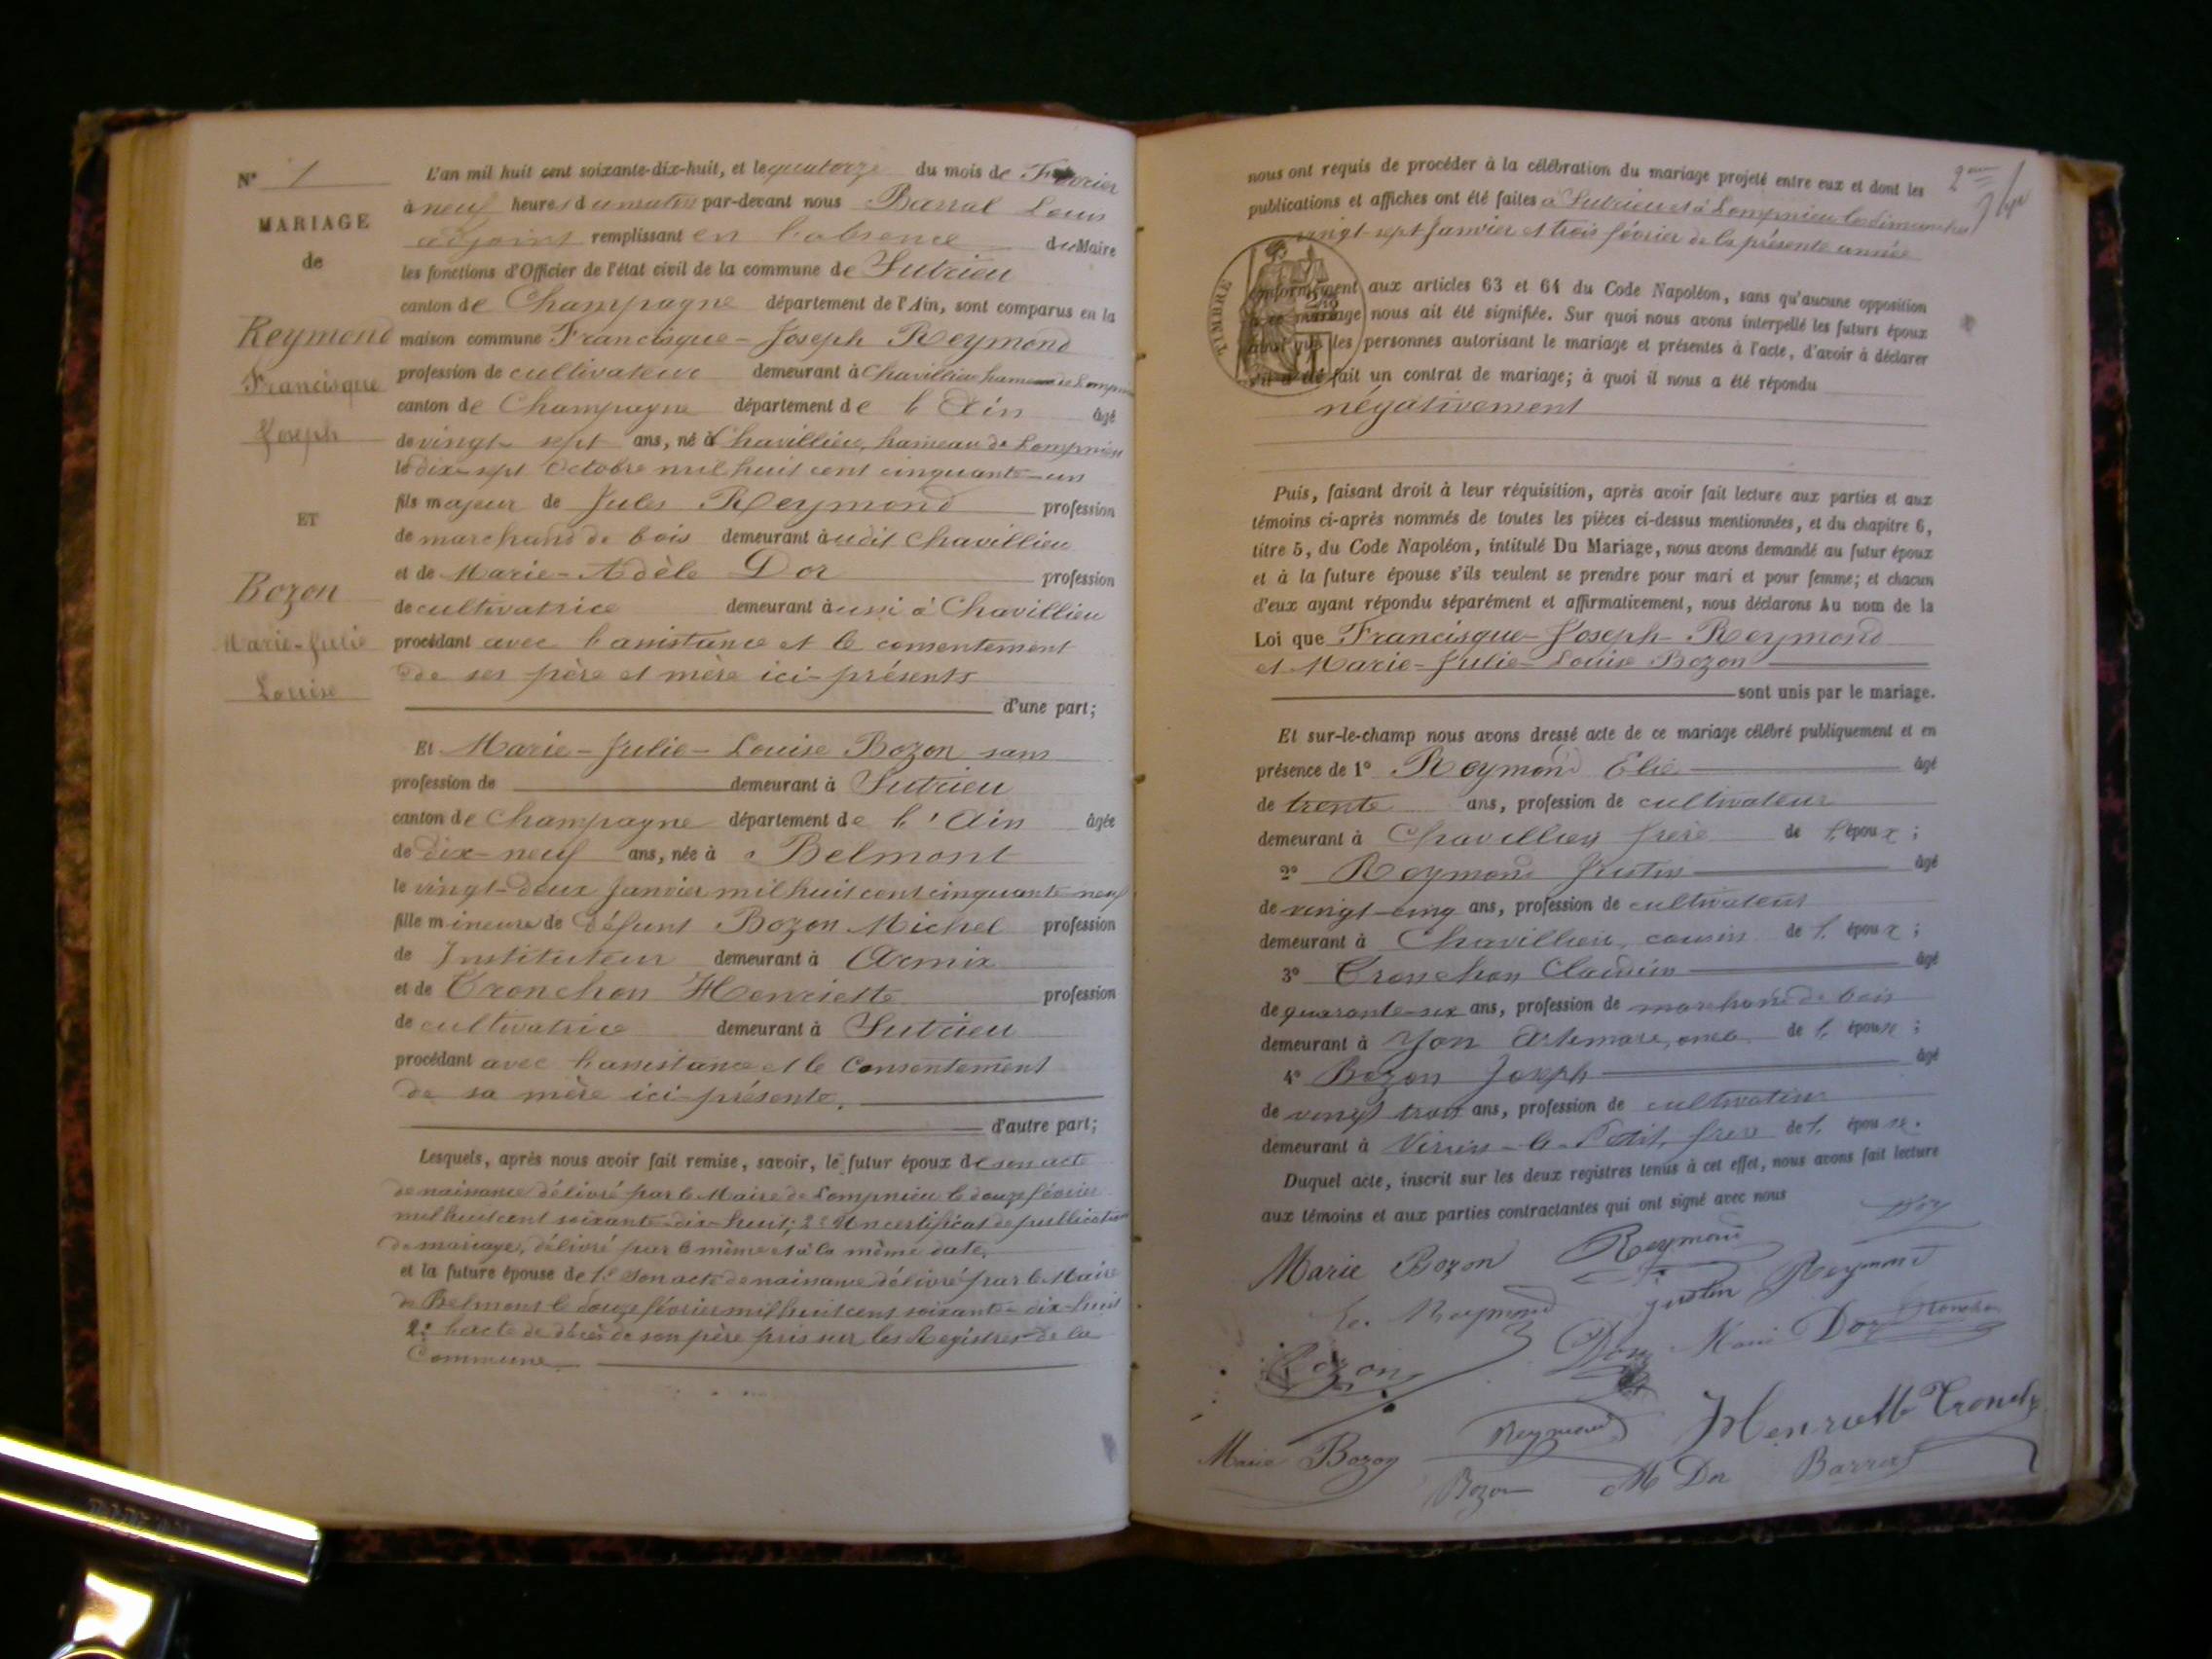 N° 1
MARIAGE
de
Reymond
Francisque
Joseph
ET
Bozon
Marie-Julie
Louise
L'an mil huit cent soixante-dix-huit, et le quatorze du mois de Février
à neuf heures du matin par-devant nous Barral Louis
adjoint remplissant en l'absence du Maire
les fonctions d'Officier de l'état civil de la commune de Sutrieu
canton de Champagne département de l'Ain, sont comparus en la
maison commune Francisque-Joseph Reymond
profession de cultivateur demeurant à Chavillieu hameau de Lompnieu
canton de Champagne département de l'Ain âgé
de vingt-sept ans, né à Chavillieu, hameau de Lompnieu
le dix-sept Octobre mil huit cent cinquante-un
fils majeur de Jules Reymond profession
de marchand de bois demeurant audit Chavillieu
et de Marie-Adèle Dor profession
de cultivatrice demeurant aussi à Chavillieu
procédant avec l'assistance et le consentement
de ses père et mère ici-présents
d'une part;
Et Marie-Julie-Louise Bozon sans
profession de demeurant à Sutrieu
canton de Champagne département de l'Ain âgée
de dix-neuf ans, née à Belmont
le vingt-deux Janvier mil huit cent cinquante-neuf
fille mineure de défunt Bozon Michel profession
de Instituteur demeurant à Armix
et de Tronchon Henriette profession
de cultivatrice demeurant à Sutrieu
procédant avec l'assistance et le Consentement
de sa mère ici-présente.
d'autre part;
Lesquels, après nous avoir fait remise, savoir, le futur époux de son acte
de naissance délivré par le Maire de Lompnieu le douze février
mil huit cent soixante-dix-huit; 2° Un certificat de publication
de mariage, délivré par le même et à la même date,
et la future épouse de 1° Son acte de naissance délivré par le Maire
de Belmont le douze février mil huit cent soixante-dix-huit
2° l'acte de décès de son père pris sur les Registres de la
Commune
2me
nous ont requis de procéder à la célébration du mariage projeté entre eux et dont les
publications et affiches ont été faites à Sutrieu et à Lompnieu les dimanches
vingt-sept Janvier et trois février de la présente année
TIMBRE
conformément aux articles 63 et 64 du Code Napoléon, sans qu'aucune opposition
à ce mariage nous ait été signifiée. Sur quoi nous avons interpellé les futurs époux
ainsi que les personnes autorisant le mariage et présentes à l'acte, d'avoir à déclarer
s'il a été fait un contrat de mariage; à quoi il nous a été répondu
négativement
Puis, faisant droit à leur réquisition, après avoir fait lecture aux parties et aux
témoins ci-après nommés de toutes les pièces ci-dessus mentionnées, et du chapitre 6,
titre 5, du Code Napoléon, intitulé Du Mariage, nous avons demandé au futur époux
et à la future épouse s'ils veulent se prendre pour mari et pour femme; et chacun
d'eux ayant répondu séparément et affirmativement, nous déclarons Au nom de la
Loi que Francisque-Joseph-Reymond
et Marie-Julie-Louise Bozon
sont unis par le mariage.
Et sur-le-champ nous avons dressé acte de ce mariage célébré publiquement et en
présence de 1° Reymond Elie âgé
de trente ans, profession de cultivateur
demeurant à Chavillieu frère de l'époux;
2° Reymond Justin âgé
de vingt-cinq ans, profession de cultivateur
demeurant à Chavillieu, cousin de l'époux;
3° Tronchon Claudin âgé
de quarante-six ans, profession de marchand de bois
demeurant à Yon Artemare, oncle de l'épouse;
4° Bozon Joseph âgé
de vingt trois ans, profession de cultivateur
demeurant à Virieu-le-Petit, frère de l'épouse.
Duquel acte, inscrit sur les deux registres tenus à cet effet, nous avons fait lecture
aux témoins et aux parties contractantes qui ont signé avec nous
Marie Bozon Reymond Dor
Reymond Justin Reymond
Bozon Dor Marie Dor Tronchon
Marie Bozon Reymond Henriette Tronchon
Bozon M Dor Barral